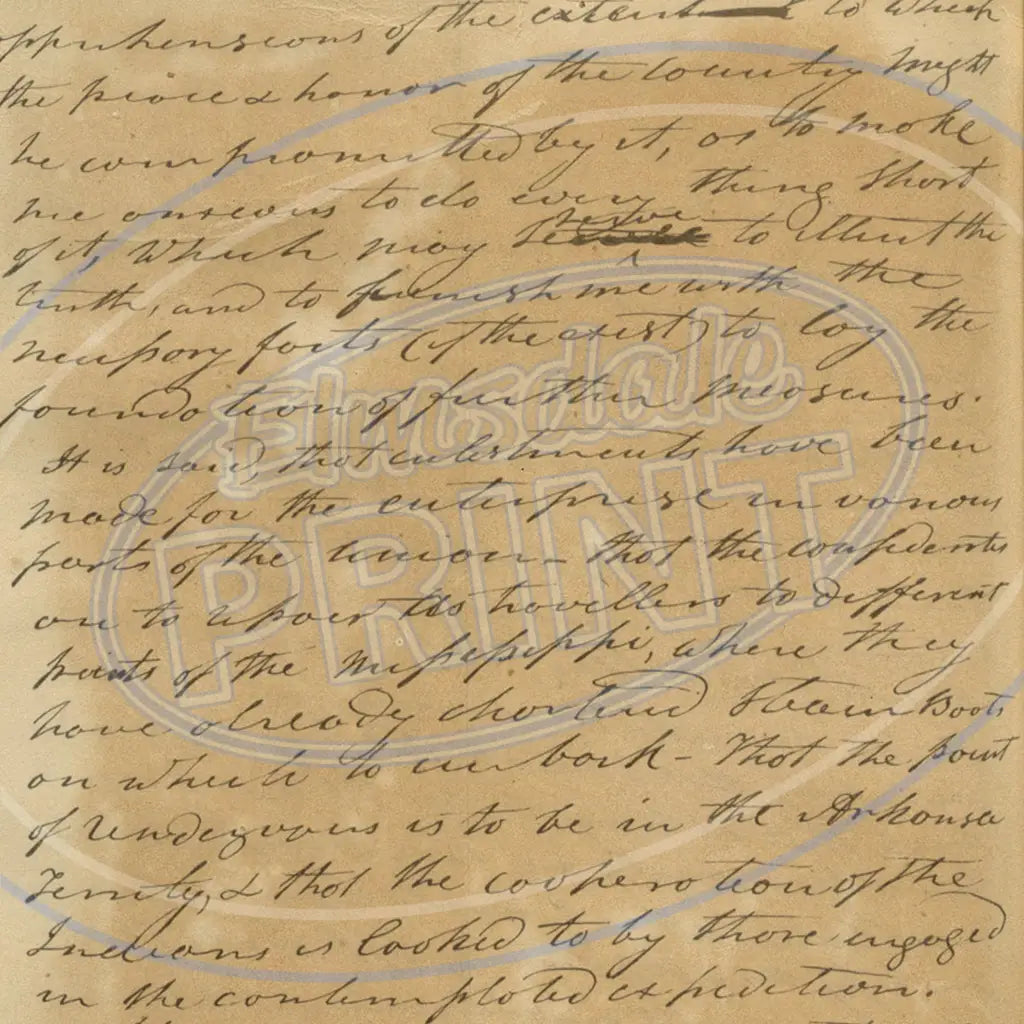 apprehensions of the extent to which
the peace & honor of the country might
be committed by it, as to make
me anxious to do every thing short
of it, which may serve to elicit the
truth, and to furnish me with the
necessary facts (if they exist) to lay the
foundation of further measures.
It is said, that enlistments have been
made for the enterprise in various
parts of the union – that the confederates
are to repair as travellers to different
points of the Mississippi, where they
have already chartered Steam Boats
on which to embark – That the point
of rendezvous is to be in the Arkansa
Territy, & that the cooperation of the
Indians is looked to by those engaged
in the contemplated expedition.
Elmsdale
PRINT